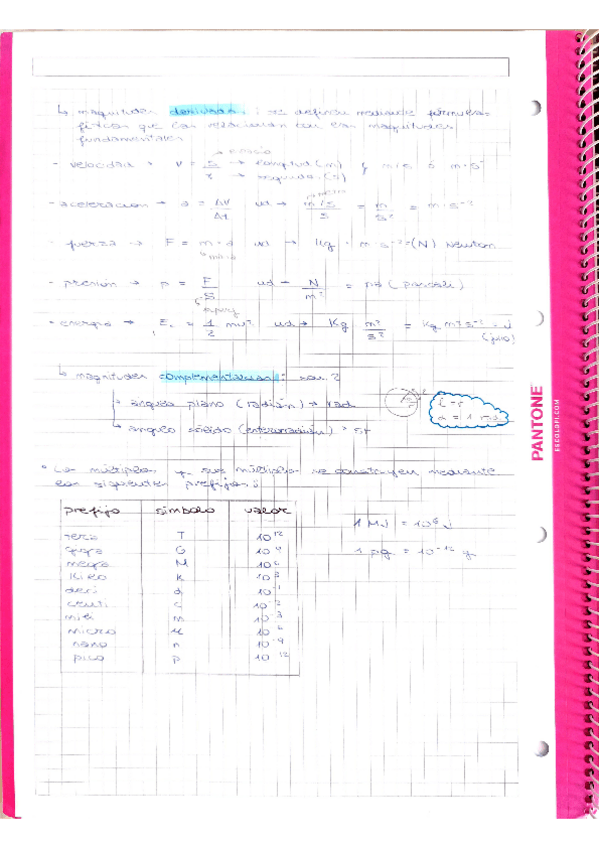 ↳ magnitudes derivadas : se definen mediante fórmulas
físicas que las relacionan con las magnitudes
fundamentales
espacio
- velocidad → v = s → longitud (m) m/s ó m·s⁻¹
t → segundos (s)
- aceleración → a = Δv/Δt ud → m/s/s = m/s² = m·s⁻²
- fuerza → F = m·a ud → Kg · m·s⁻² = (N) Newton
masa
- presión → p = F/S ud → N/m² = pa (pascal)
- energía → Ec = 1/2 mv² ud → Kg m²/s² = Kg m² s⁻² = J
(julio)
↳ magnitudes complementarias : son 2
↳ ángulo plano (radián) → rad
↳ ángulo sólido (estereorradián) → sr
α = 1 rad
• Los múltiplos y submúltiplos se construyen mediante
los siguientes prefijos :
prefijo símbolo valor
tera T 10¹²
giga G 10⁹
mega M 10⁶
Kilo K 10³
deci d 10⁻¹
centi c 10⁻²
mili m 10⁻³
micro μ 10⁻⁶
nano n 10⁻⁹
pico p 10⁻¹²
1 MJ = 10⁶ J
1 pg = 10⁻¹² g
PANTONE